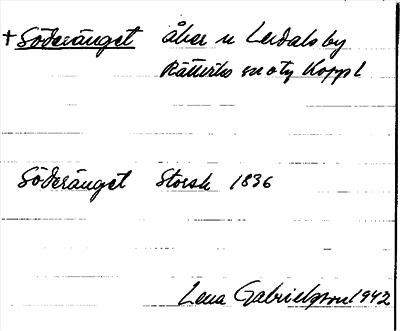 † Söderänget åker n Lerdals by
Rättviks sn o tg Koppl
Söderänget Storsk 1836
Lena Gabrielsson 1942